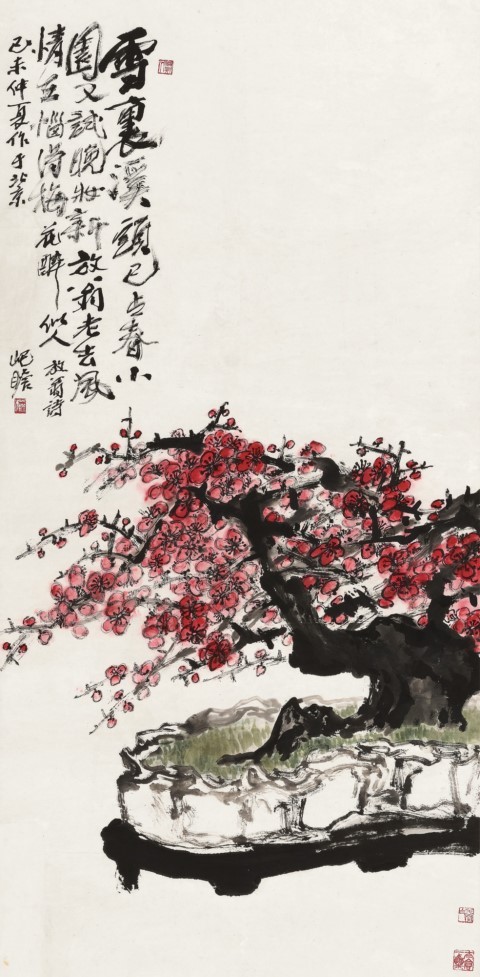 雪裏溪頭已占春小
園又試晚妝新放翁老去風
情在惱得梅花醉似人放翁詩
己未仲夏作于北京
屺瞻